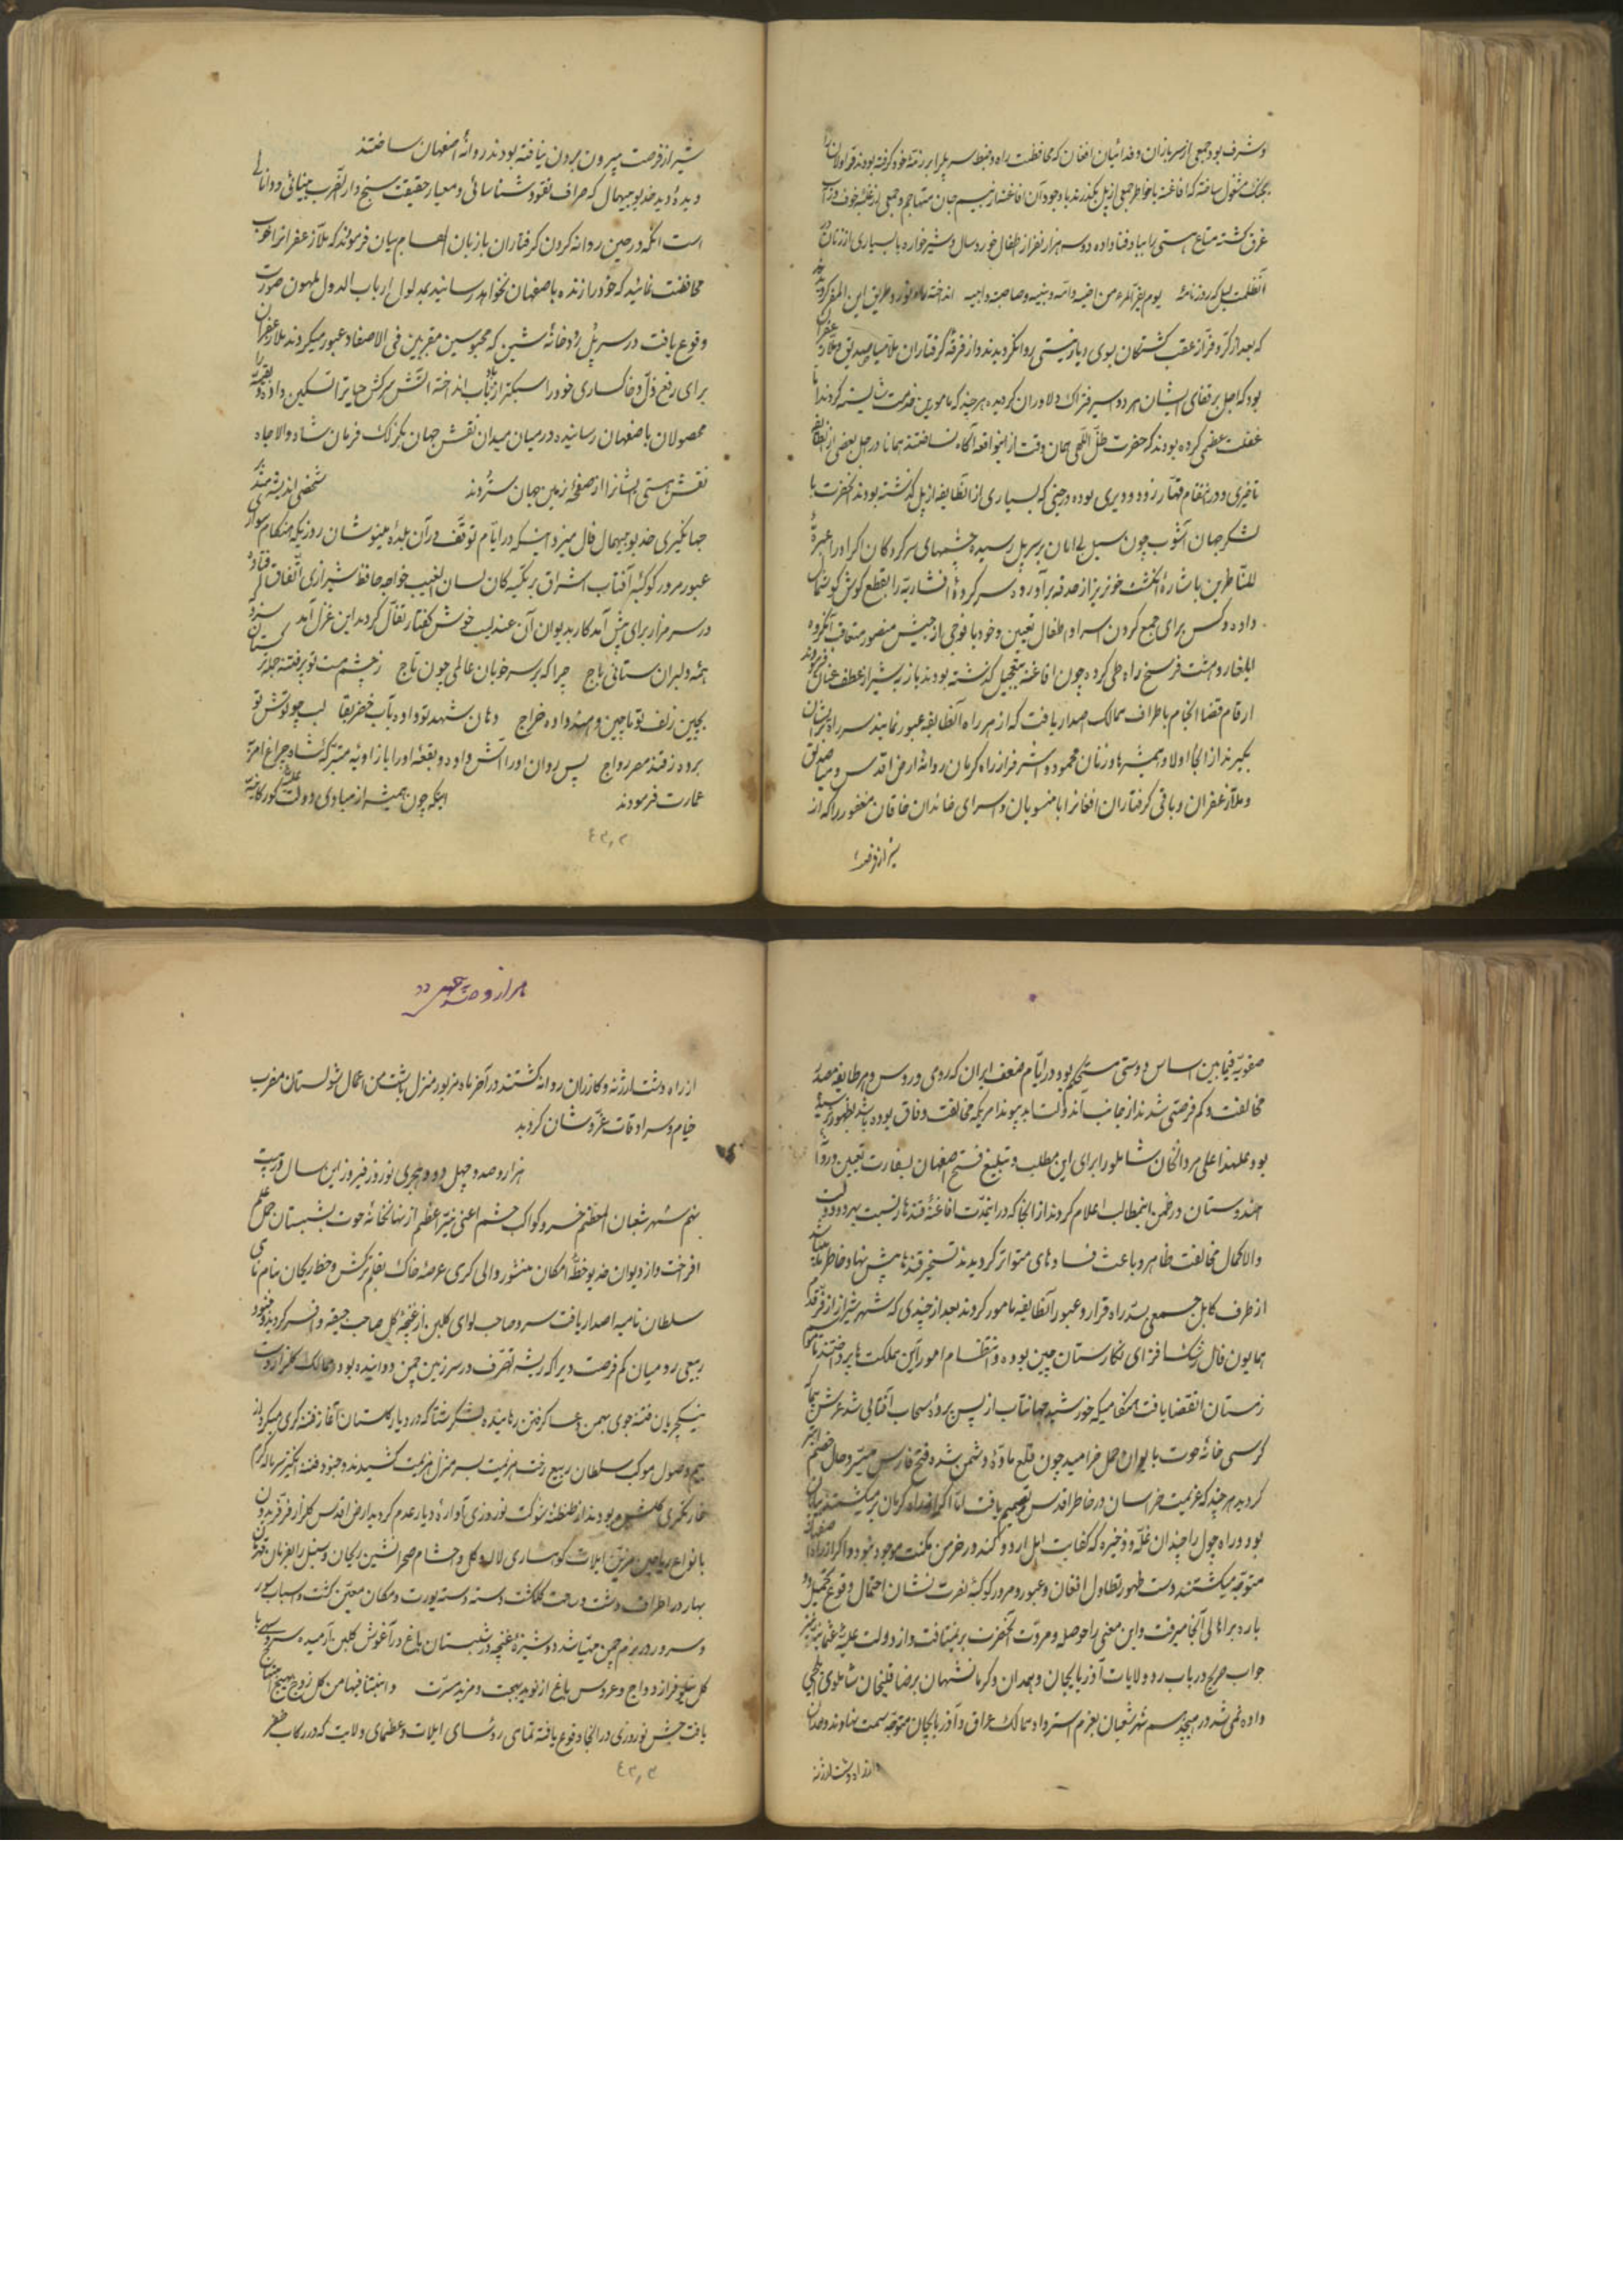 او مشرف بود جمعی از سربازان و فدائیان افغان که محافظت راه و ضبط سر پل را بر ذمّه خود گرفته بودند قراولان را
بجنگ مشغول ساخته که افاغنه با خواطر جمعی از پل بگذرند با وجود آن افاغنه از بیم جان متهاجم و جمعی از غلبه خوف در آب
غرق گشته متاع هستی را بباد فنا داده دو سه هزار نفر از اطفال خورد سال و شیرخواره با بسیاری از زنان
یوم یفرّ المرء من اخیه و امّه و ابیه و صاحبته و بنیه انداخته
که بعد از کرّ و فرّ از عقب کشتگان بوی
بود که اجل بر قفای ایشان هر دو اسیر فتراک دلاوران گردید هر چند که مامورین خدمت شایسته کردند امّا
غفلت عظمی کرده بودند که حضرت ظلّ اللّهی همان وقت ازینواقعه آگاه نساختند همانا در اجل بعضی از آنطایفه
تاخیری و در انتقام قهّار زود و دیری بوده در حینی که بسیاری از آنطایفه از پل گذشته بودند آنحضرت با
لشکر جهان آشوب چون سیل بی امان بر سر پل رسیده چشمهای سرکردگان اکراد را عبرةً
للنّاظرین باشارهٔ انگشت خونریز از حدقه برآورده سرکردهٔ افشاریه را بقطع گوش گوشمال
داده و کس برای جمع کردن اسرا و اطفال تعیین و خود با فوجی از جیش منصور متعاقب آنگروه
ایلغار و هشت فرسخ راه طی کرده چون افاغنه بتعجیل گذشته بودند باز بشیراز عطف عنان فرمودند
ارقام قضا انجام باطراف ممالک اصدار یافت که از هر راه آنطایفه عبور نمایند سر راه بر ایشان
بگیرند از آنجا اولاد و همشیرها و زنان محمود و اشرف را از راه کرمان روانهٔ ارض اقدس و میاصدیق
و ملّا زعفران و باقی گرفتاران افاغنه را با منسوبان و اسرای خاندان خاقان مغفور را که از
شیراز فرصت
شیراز فرصت بیرون بردن نیافته بودند روانهٔ اصفهان ساختند
و دیدهٔ دید خدیو بیهمال که صرّاف نقود شناسائی و معیار حقیقت سنج دار الضّرب بینائی و دانائی
است آنکه در حین روانه کردن گرفتاران با زبان الهام بیان فرمودند که ملّا زعفران را خوب
محافظت نمائید که خود را زنده باصفهان نخواهد رسانید بمدلول ارباب الدول ملهمون صورت
وقوع یافت در سر پل رودخانهٔ که محبوسین مقرّنین فی الاصفاد عبور میکردند ملّا زعفران
برای رفع ذلّ و خاکساری خود را سبکتر از باد بآب انداخته آتش سرکش حیات را تسکین داد و بقیّه را
محصولان باصفهان رسانیده در میان میدان نقش جهان بگزلک فرمان شاه والا جاه
نقش هستی ایشان را از صفحهٔ زمین جهان ستردند شخصی اندیشه‌مند
جهانگیری خدیو بیهمال فال میزد اینکه در ایّام توقّف در آن بلدهٔ مینونشان روزیکه هنگام سواری
عبور مرور کوکبهٔ آفتاب اشراق بر تکیه‌گان لسان الغیب خواجه حافظ شیرازی اتّفاق افتاد
در سر مزار برای پیش آمد کار بدیوان آن عندلیب خوش گفتار تفأل کردند این غزل آمد سزد که از
همه دلبران ستانی باج چرا که بر سر خوبان عالمی چون تاج ز چشم مست تو پر فتنه جمله ترکستان
بچین زلف تو ماچین و هند داده خراج دهان شهد تو داده بآب خضر بقا لب چو نوش تو
برده ز قند مصر رواج پس روان او را آش داده و بقعهٔ او را با زاویهٔ متبرّکهٔ شاه چراغ امر
عمارت فرمودند اینکه چون همیشه از مبادی دولت علیّهٔ گورکانیّه
۴۲٫۳
صفویّه فیمابین اساس دوستی مستحکم بود در ایّام ضعف ایران که روی و روس و هر طایفه مصدر
مخالفت و کم فرصتی شدند از جانب آندولت ابد پیوند امریکه مخالفت وفاق بوده باشد بظهور نرسیده
بود علیهذا علی مردانخان شاملو را برای این مطلب و تبلیغ فتح اصفهان بسفارت تعیین و روانهٔ
هندوستان و در ضمن اینمطالب اعلام کردند از آنجا که در اینمدّت افاغنهٔ قندهار نسبت بهر دو دولت
والا کمال مخالفت ظاهر و باعث فسادهای متواتر گردیدند تسخیر قندهار پیش نهاد خاطر
از طرف کابل جمعی بسدّ راه فرار و عبور آنطایفه مامور گردند بعد از چندی که شهر شیراز از فرّ قدوم
همایون فال رشک افزای نگارستان چین بوده و انتظام امور آن مملکت پرداختند تا موسم
زمستان انقضا یافت هنگامیکه خورشید جهانتاب از پس پردهٔ سحاب آفتابی شد عرش سما که
کرسی خانهٔ حوت بایوان حمل خرامید چون قلع مادّهٔ دشمن شده فتح فارس میسّر و حال خصم ابتر
گردید هر چند که عزیمت خراسان در خاطر اقدس تصمیم یافت امّا اگر از راه کرمان برمیگشتند بیابان
بود و راه چول را چندان غلّه و ذخیره که کفایت اهل اردو کند در خرمن مکنت موجود نبود و اگر از راه اصفهان
متوجّه میگشتند دست ظهور تطاول افغان و عبور و مرور کوکبهٔ نصرت نشان احتمال وقوع تحمیل دو
باره بر اهالی آنجا میرفت و این معنی را حوصله و مروّت آنحضرت بر نمیتافت و از دولت علیّهٔ عثمانیّه نیز
جواب صریح در باب ردّ ولایات آذربایجان و همدان و کرمانشهان برضا قلیخان شاملوی ایلچی
داده نمی شد در هیجدهم شهر شعبان بعزم استرداد ممالک عراق و آذربایجان متوجّه سمت نهاوند و همدان
از راه دشت ارژنه
هزار و صد و چهل و دو
از راه دشت ارژنه و کازران روانه گشتند در آخر ماه مزبور منزل باشت من اعمال شولستان مضرب
خیام و سرادقات عزّ و شان گردید
هزار و صد و چهل و دو هجری نوروز فیروز این سال در بیست
نیّم شهر شعبان المعظّم خسرو کواکب حشم اعنی نیّر اعظم از نهانخانهٔ حوت بشبستان حمل علم
افراخت و از دیوان خدیو خطّهٔ امکان منشور والی گری عرصهٔ خاک بقلم ترکش و خط ریحان بنام نامی
سلطان نامیه اصدار یافت سرو صاحب لوای گلبن از غنچهٔ گل صاحب جیقه و افسر گردید و جنود
ربیعی رومیان کم فرصت دیرا که ریشه تصرّف در سرزمین چمن دوانیده بود در ممالک گلزار دست
ینکیچریان فتنه جوی بهمن و عساکر شتا که در دیار گلستان آغاز فتنه گری میکرد از
بیم وصول موکب سلطان ربیع رخت عزیمت بسر منزل هزیمت کشیدند و جنود فتنه انگیز سرما که گرم
غارتگری گلشن بودند از طنطنهٔ شوکت نوروزی آوارهٔ دیار عدم گردید ارض اقدس گلزار فرّ فریدون
بانواع ریاحین مزیّن ایلات کوهساری لاله و گل و احشام صحرانشین ریحان و سنبل را بفرمان قهرمان
بهار در اطراف دشت و ساحت گلگشت دسته دسته یورت و مکان معیّن گشت و اسباب سور
و سرور در بزم چمن مهیّا شد دوشیزهٔ غنچه در شبستان باغ در آغوش گلبن آرمیده سرو سهی با
گل فراز دواج و عروس باغ از نوید بهجت و مزید مسرّت و انبتنا فیها من کل زوج بهیج
یافت جشن نوروزی در آنجا وقوع یافته تمامی رؤسای ایلات و عظمای ولایت که در رکاب ظفر
۴۲٫۳